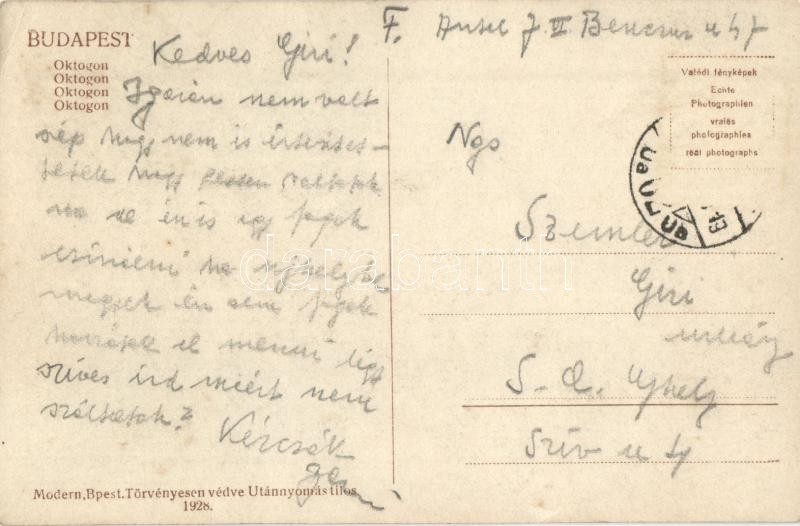 BUDAPEST
Oktogon
Oktogon
Oktogon
Oktogon
Kedves Giri!
Igazán nem volt
szép hogy nem is értesítet-
tetek hogy Pesten voltatok
na de én is így fogok
csinálni ha Ujhelybe
megyek én sem fogok
hozzátok el menni légy
szíves írd miért nem
szóltatok?
Kézcsók
F. Antel J II Bencur u 47
Valódi fényképek
Echte
Photographien
vraies
photographies
réal photographs
Ngs
Szemler
Giri
S. A. Ujhely
Szív u
Modern, Bpest. Törvényesen védve Utánnyomás tilos
1928.
darabanth